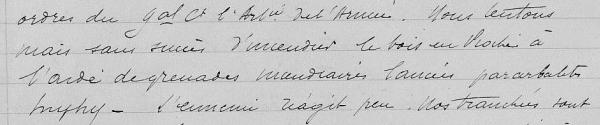 ordres du Gal Ct l'Artie de l'Armée. Nous tentons
mais sans succès d'incendier le bois en Pioche à
l'aide de grenades incendiaires lancées par arbalète
L'ennemi réagit peu. Nos tranchées sont